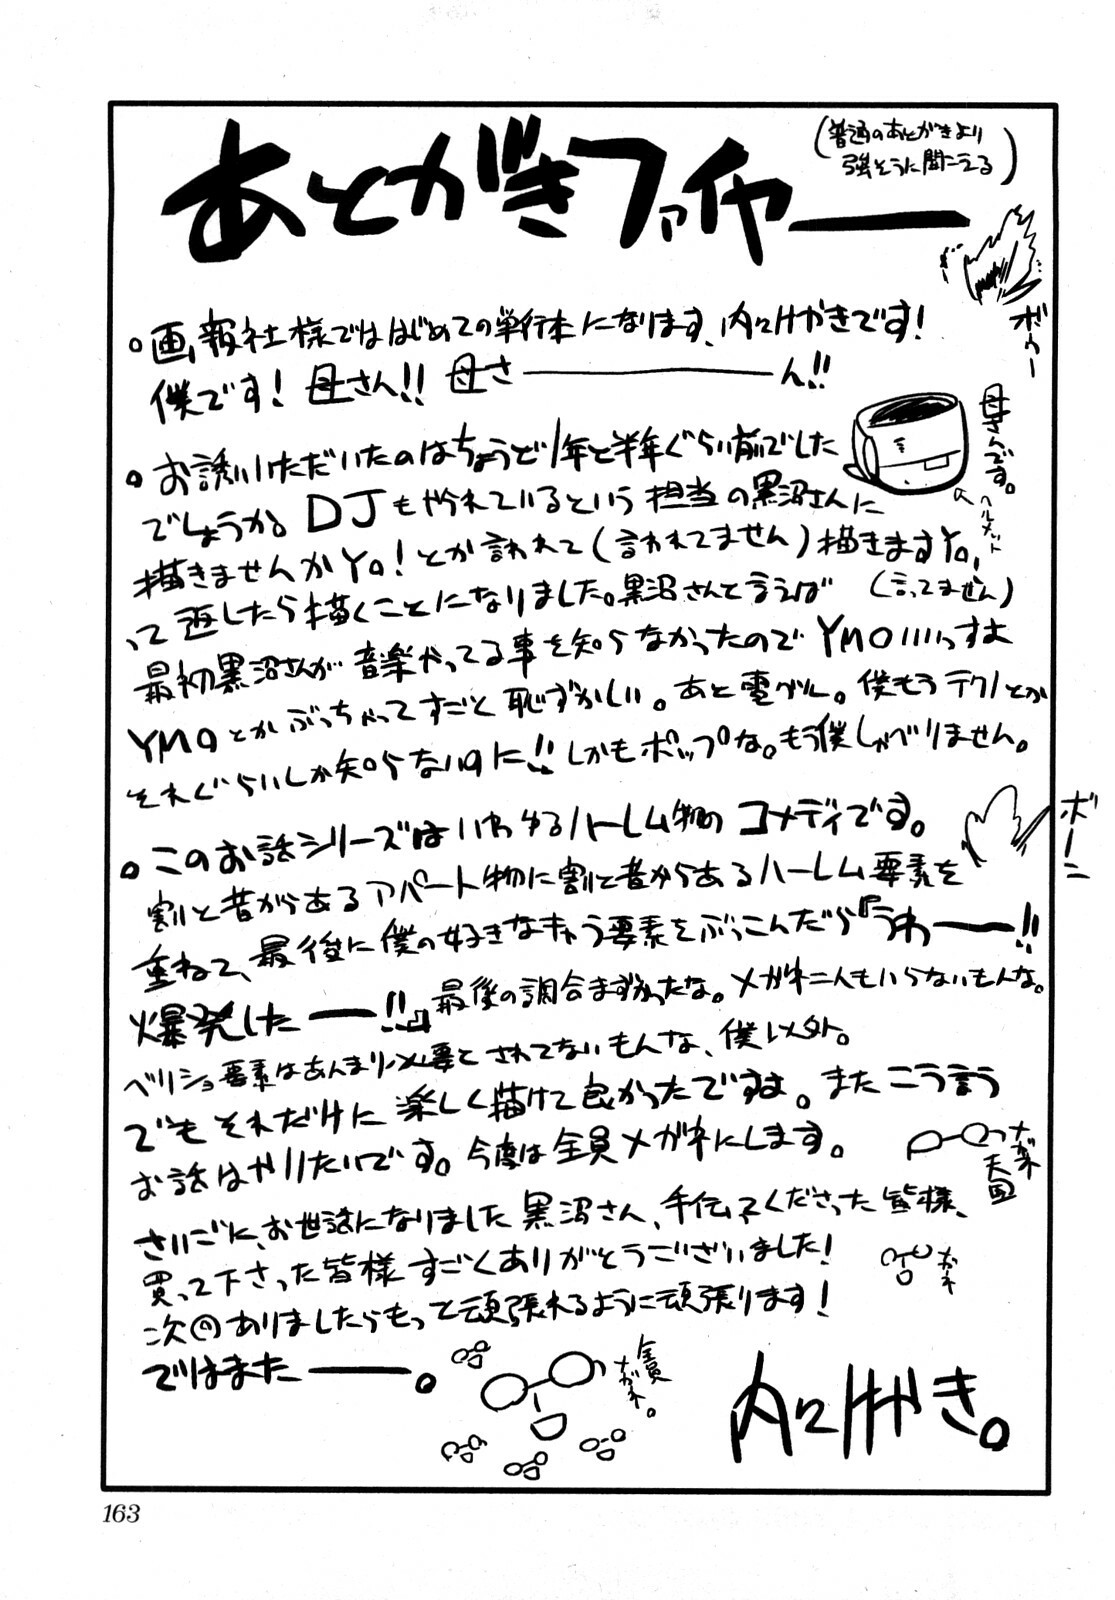 あとがきファイヤー
(普通のあとがきより
強そうに聞こえる)
ボゥー
。画報社様でははじめての単行本になります、内々けやきです!
僕です! 母さん!! 母さ――――ん!!
母さんです。
ヘルメット
。お誘いいただいたのはちょうど1年と半年ぐらい前でした
でしょうか。DJもやれているという担当の黒沼さんに
描きませんかYo!とか言われて(言われてません)描きますYo,
って返したら描くことになりました。黒沼さんと言えば (言ってません)
最初黒沼さんが音楽やってる事を知らなかったのでYMOいいっすよ
YMOとかぶっちゃってすごく恥ずかしい。あと電グル。僕もうテクノとか
それぐらいしか知らないのに!!しかもポップな。もう僕しゃべりません。
。このお話シリーズはいわゆるハーレム物の コメディです。
ボーン
割と昔からあるアパート物に割と昔からあるハーレム要素を
重ねて、最後に僕の好きなキャラ要素をぶっこんだら『うわー――!!
爆発したー――!!』最後の調合まずかったな。メガネ二人もいらないもんな。
ベリショ要素はあんまり必要とされてないもんな、僕以外。
でもそれだけに楽しく描けて良かったですよ。またこう言う
お話はやりたいです。今度は全員メガネにします。
メガネ天国
さいごに、お世話になりました黒沼さん、手伝てくださった皆様、
買って下さった皆様すごくありがとうございました!
次回ありましたらもって頑張れるように頑張ります!
ではまたー――。
全員
メガネ。
内々けやき。
163